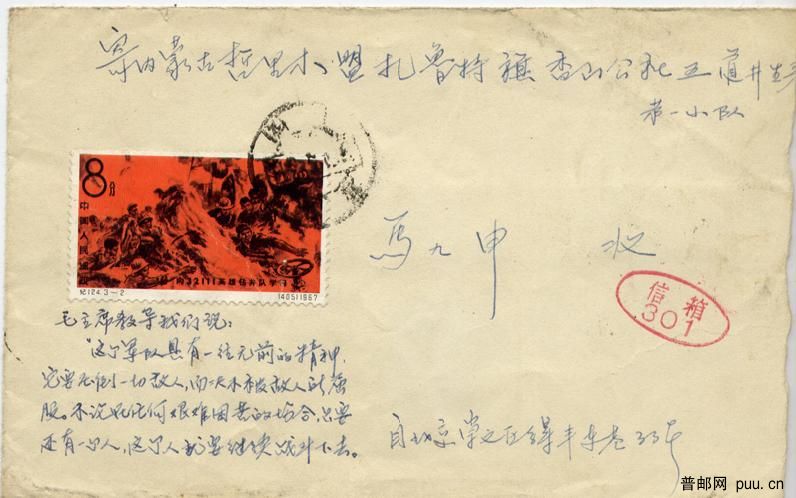 寄内蒙古哲里木盟扎鲁特旗香山公社五道井
第一小队
8分
中国人民
向32111英雄钻井队学习
纪124.3-2
(405)1967
马九申 收
信箱
301
毛主席教导我们说：
"这个军队具有一往无前的精神，
它要压倒一切敌人，而决不被敌人所屈
服。不论在任何艰难困苦的场合，只要
还有一个人，这个人就要继续战斗下去。
自北京崇文区
普邮网 puu.cn